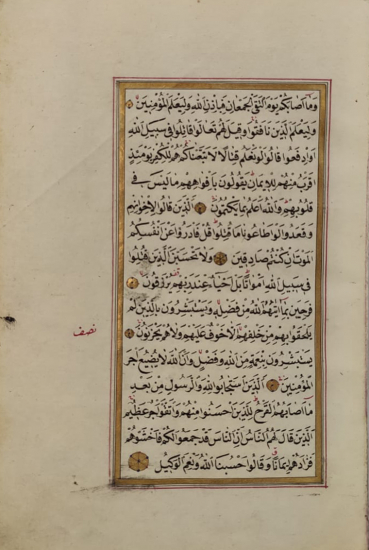 وَمَا أَصَابَكُمْ يَوْمَ الْتَقَى الْجَمْعَانِ فَبِإِذْنِ اللَّهِ وَلِيَعْلَمَ الْمُؤْمِنِينَ
وَلِيَعْلَمَ الَّذِينَ نَافَقُوا وَقِيلَ لَهُمْ تَعَالَوْا قَاتِلُوا فِي سَبِيلِ اللَّهِ
أَوِ ادْفَعُوا قَالُوا لَوْ نَعْلَمُ قِتَالًا لَاتَّبَعْنَاكُمْ هُمْ لِلْكُفْرِ يَوْمَئِذٍ
أَقْرَبُ مِنْهُمْ لِلْإِيمَانِ يَقُولُونَ بِأَفْوَاهِهِمْ مَا لَيْسَ فِي
قُلُوبِهِمْ وَاللَّهُ أَعْلَمُ بِمَا يَكْتُمُونَ الَّذِينَ قَالُوا لِإِخْوَانِهِمْ
وَقَعَدُوا لَوْ أَطَاعُونَا مَا قُتِلُوا قُلْ فَادْرَءُوا عَنْ أَنْفُسِكُمُ
الْمَوْتَ إِنْ كُنْتُمْ صَادِقِينَ وَلَا تَحْسَبَنَّ الَّذِينَ قُتِلُوا
فِي سَبِيلِ اللَّهِ أَمْوَاتًا بَلْ أَحْيَاءٌ عِنْدَ رَبِّهِمْ يُرْزَقُونَ
فَرِحِينَ بِمَا آتَاهُمُ اللَّهُ مِنْ فَضْلِهِ وَيَسْتَبْشِرُونَ بِالَّذِينَ لَمْ
يَلْحَقُوا بِهِمْ مِنْ خَلْفِهِمْ أَلَّا خَوْفٌ عَلَيْهِمْ وَلَا هُمْ يَحْزَنُونَ
نصف
يَسْتَبْشِرُونَ بِنِعْمَةٍ مِنَ اللَّهِ وَفَضْلٍ وَأَنَّ اللَّهَ لَا يُضِيعُ أَجْرَ
الْمُؤْمِنِينَ الَّذِينَ اسْتَجَابُوا لِلَّهِ وَالرَّسُولِ مِنْ بَعْدِ
مَا أَصَابَهُمُ الْقَرْحُ لِلَّذِينَ أَحْسَنُوا مِنْهُمْ وَاتَّقَوْا أَجْرٌ عَظِيمٌ
الَّذِينَ قَالَ لَهُمُ النَّاسُ إِنَّ النَّاسَ قَدْ جَمَعُوا لَكُمْ فَاخْشَوْهُمْ
فَزَادَهُمْ إِيمَانًا وَقَالُوا حَسْبُنَا اللَّهُ وَنِعْمَ الْوَكِيلُ